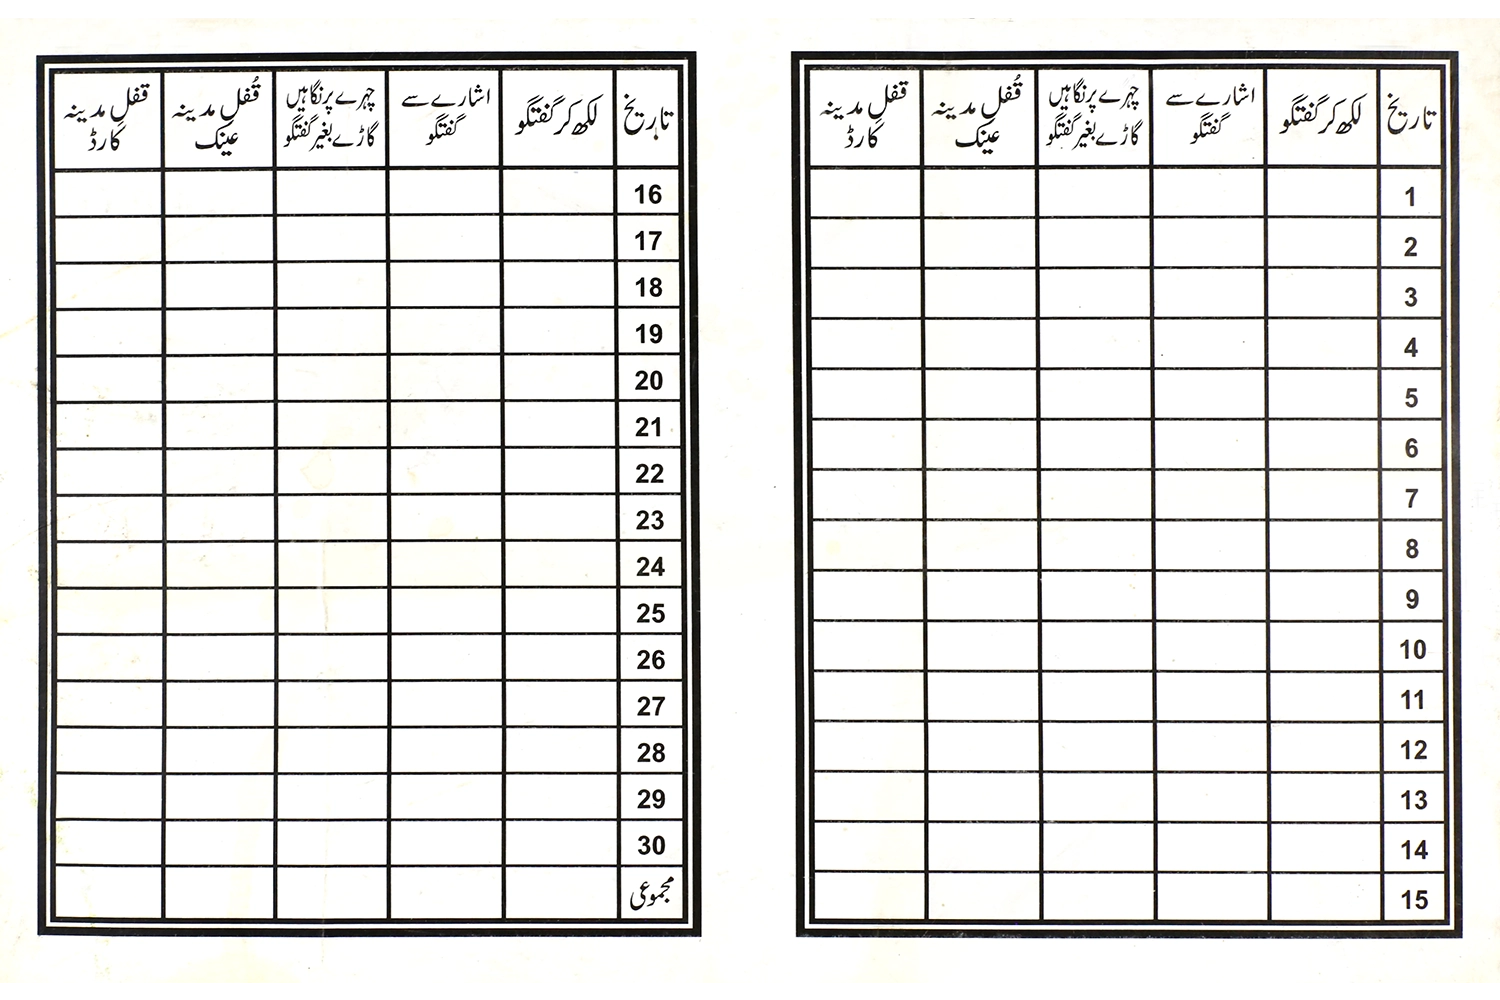 تاریخ
لکھ کر گفتگو
اشارے سے
گفتگو
چہرے پر نگاہیں
گاڑے بغیر گفتگو
قُفلِ مدینہ
عینک
قفلِ مدینہ
کارڈ
1
2
3
4
5
6
7
8
9
10
11
12
13
14
15
تاریخ
لکھ کر گفتگو
اشارے سے
گفتگو
چہرے پر نگاہیں
گاڑے بغیر گفتگو
قُفلِ مدینہ
عینک
قفلِ مدینہ
کارڈ
16
17
18
19
20
21
22
23
24
25
26
27
28
29
30
مجموعی